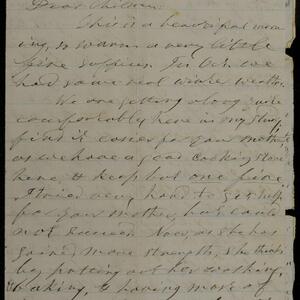 Dear Children
This is a beautiful morn
ing, so warm a very little
fire suffices. In Oct. we
had some real winter weather.
We are getting along quite
comfortably here in my study,
find it easier for your mother,
as we have a good cooking stove
here & keep but one fire.
I tried very hard to get help
for your mother, but could
not succeed. Now, as she has
gained more strength, she thinks
by putting out her washing,
baking, & having more of